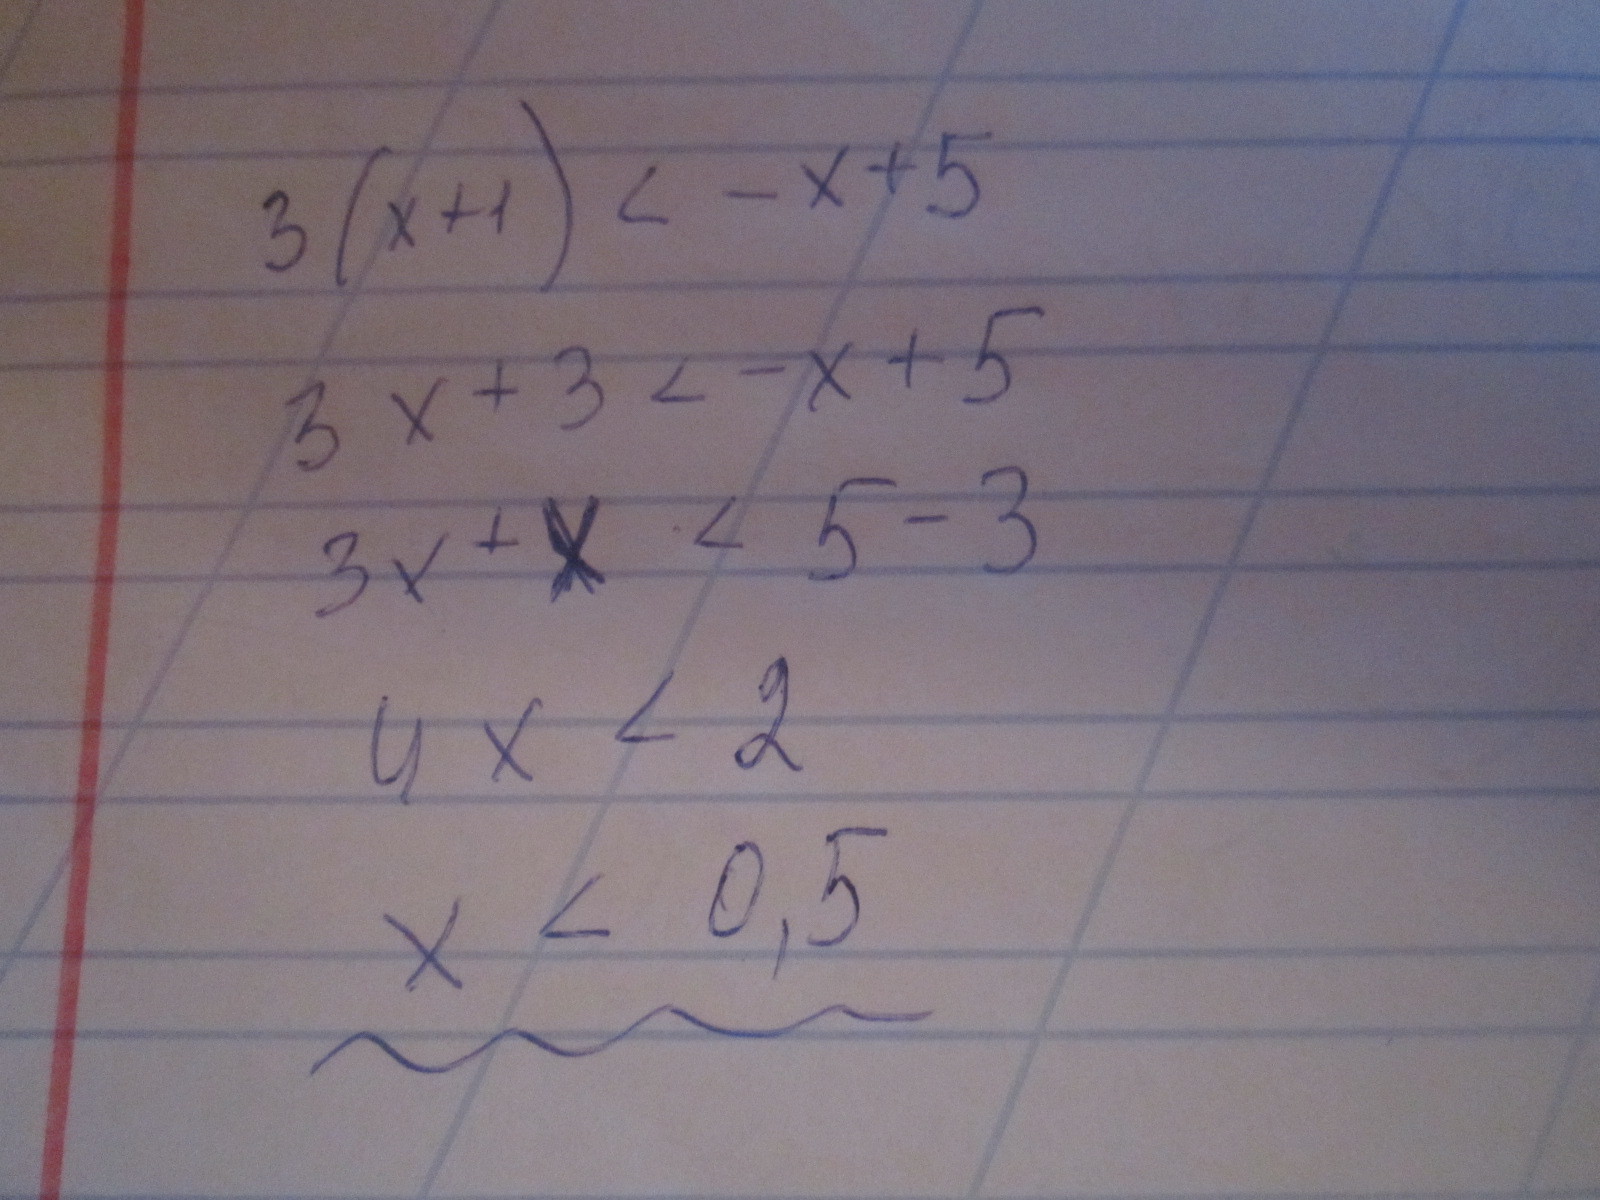 3(x+1) < -x+5
3x+3 < -x+5
3x+x < 5-3
4x < 2
x < 0,5